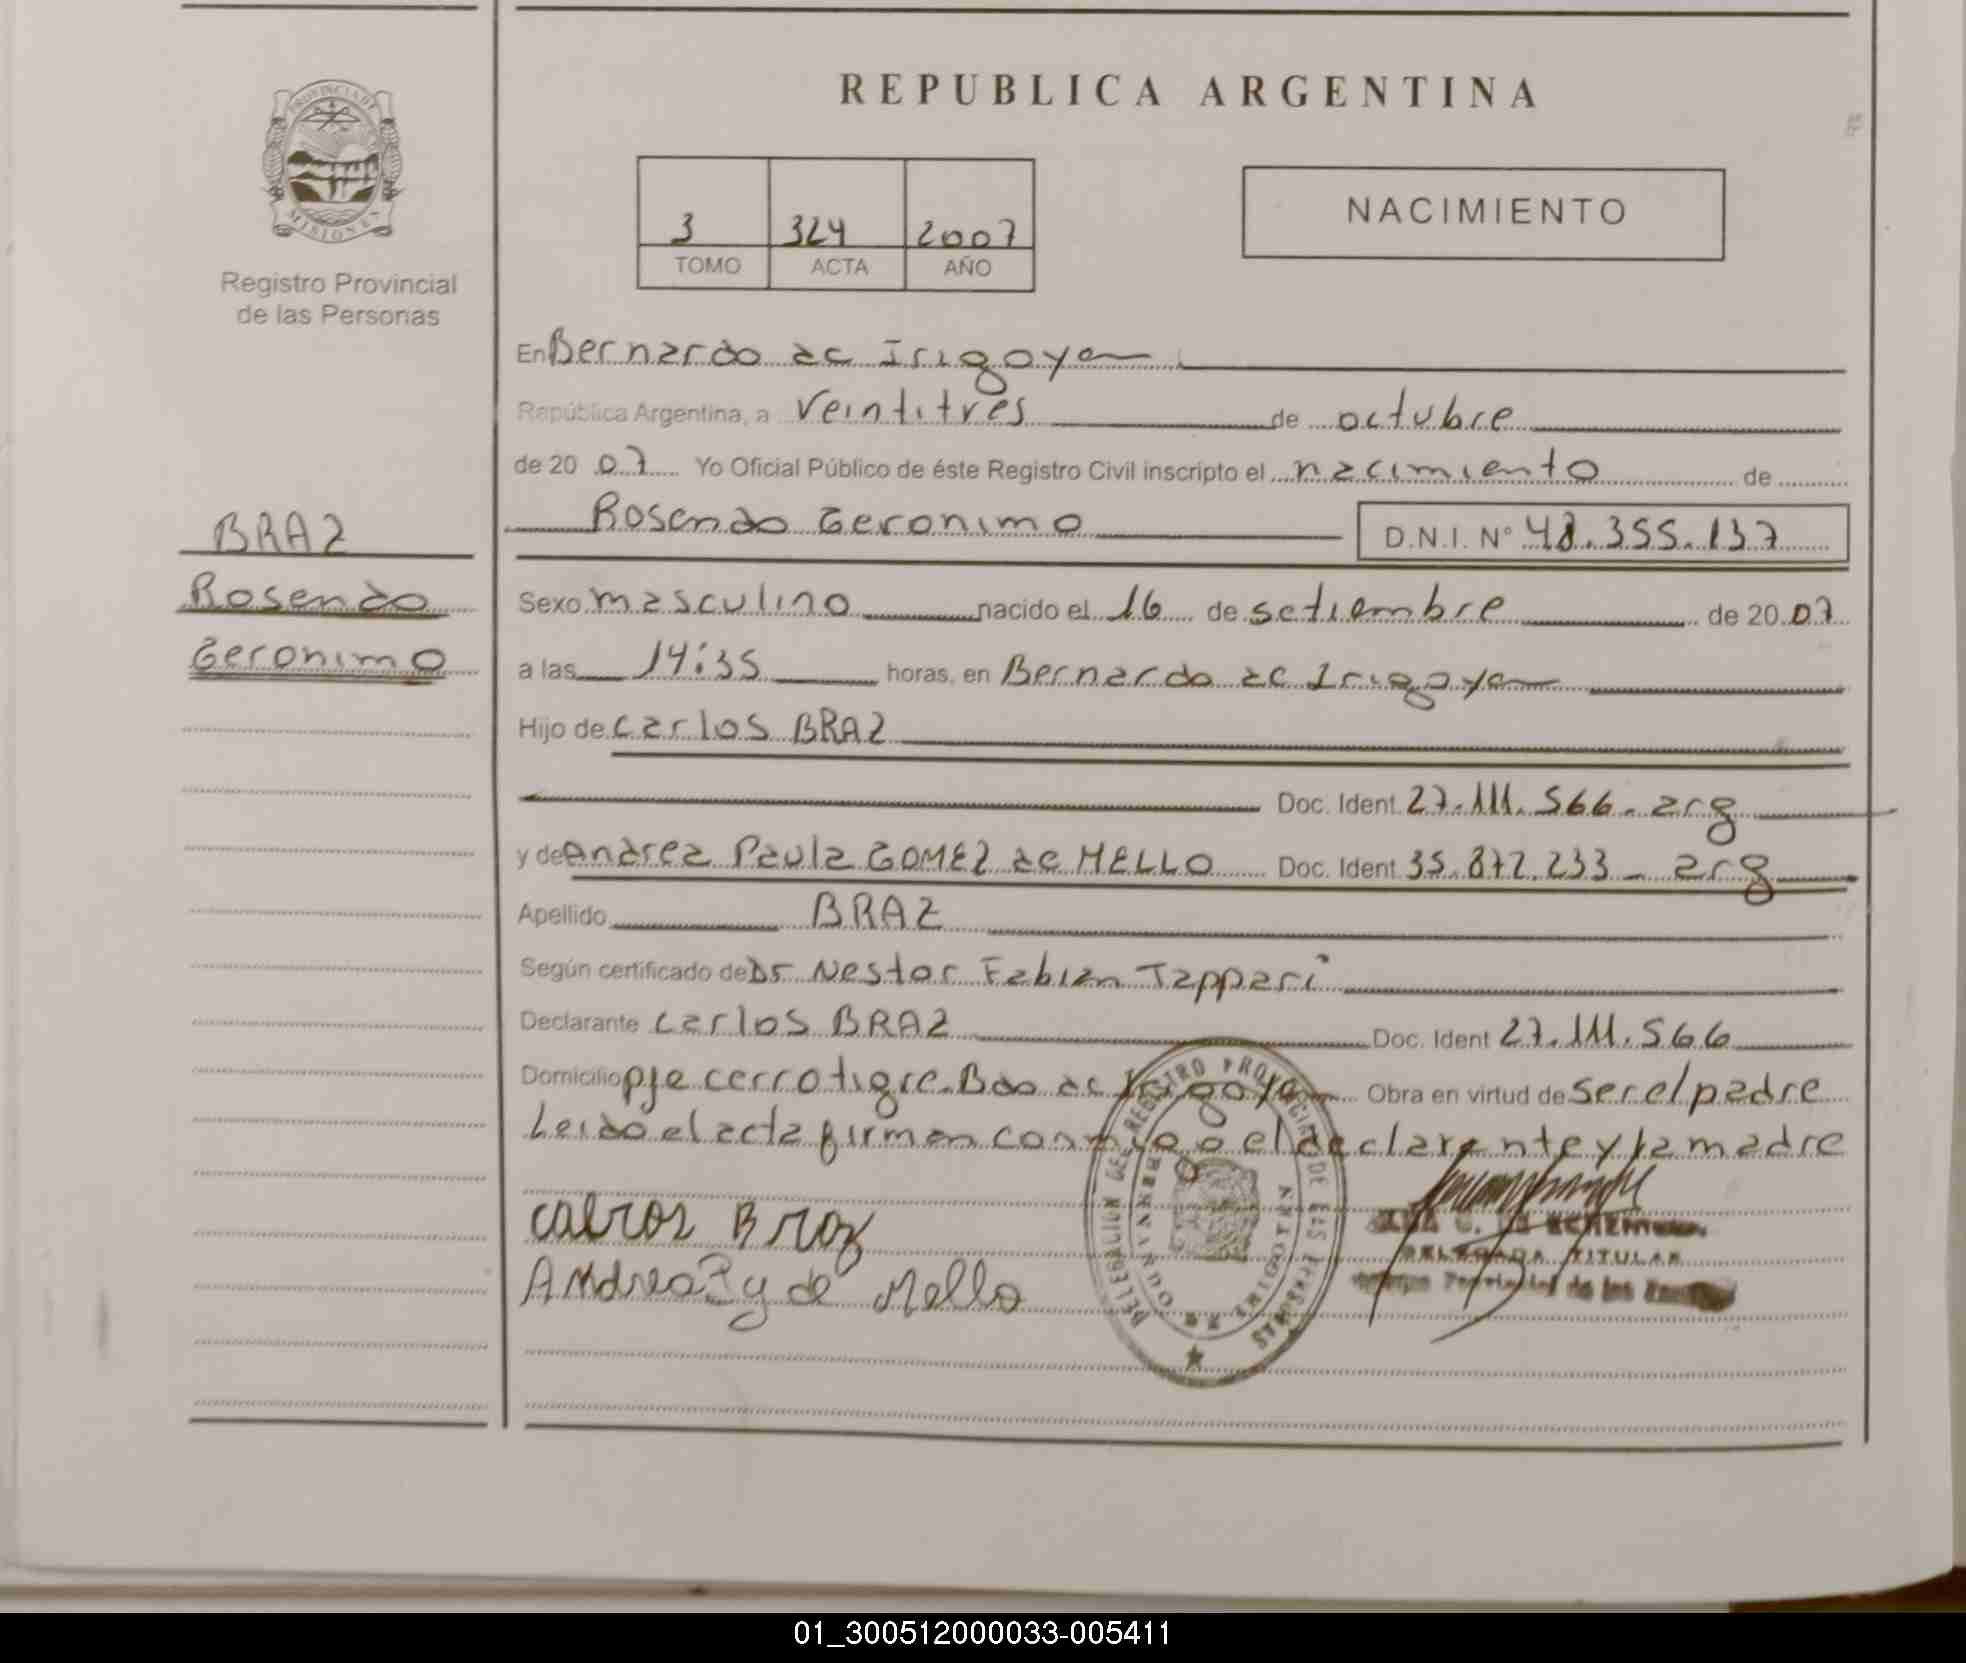 REPUBLICA ARGENTINA
PROVINCIA DE
MISIONES
Registro Provincial
de las Personas
3 324 2007
TOMO ACTA AÑO
NACIMIENTO
En Bernardo de Irigoyen
República Argentina, a veintitres de octubre
de 20 07 Yo Oficial Público de éste Registro Civil inscripto el nacimiento de
Rosendo Geronimo D.N.I. Nº 48.355.137
BRAZ
Rosendo
Geronimo
Sexo masculino nacido el 16 de setiembre de 20 07
a las 14:35 horas, en Bernardo de Irigoyen
Hijo de Carlos BRAZ
Doc. Ident. 27.111.566 - arg
y de Andrea Paula GOMEZ de MELLO Doc. Ident. 35.872.233 - arg
Apellido BRAZ
Según certificado de Dr Nestor Fabian Tappari
Declarante Carlos BRAZ Doc. Ident 27.111.566
Domicilio pje cerro tigre. Bdo de Irigoyen Obra en virtud de ser el padre
Leido el acta firman conmigo el declarante y la madre
Calros Braz
Andrea P g de Mello
DELEGACION DEL REGISTRO PROVINCIAL DE LAS PERSONAS
BERNARDO DE IRIGOYEN
DELEGADA TITULAR
Provincial de las
01_300512000033-005411